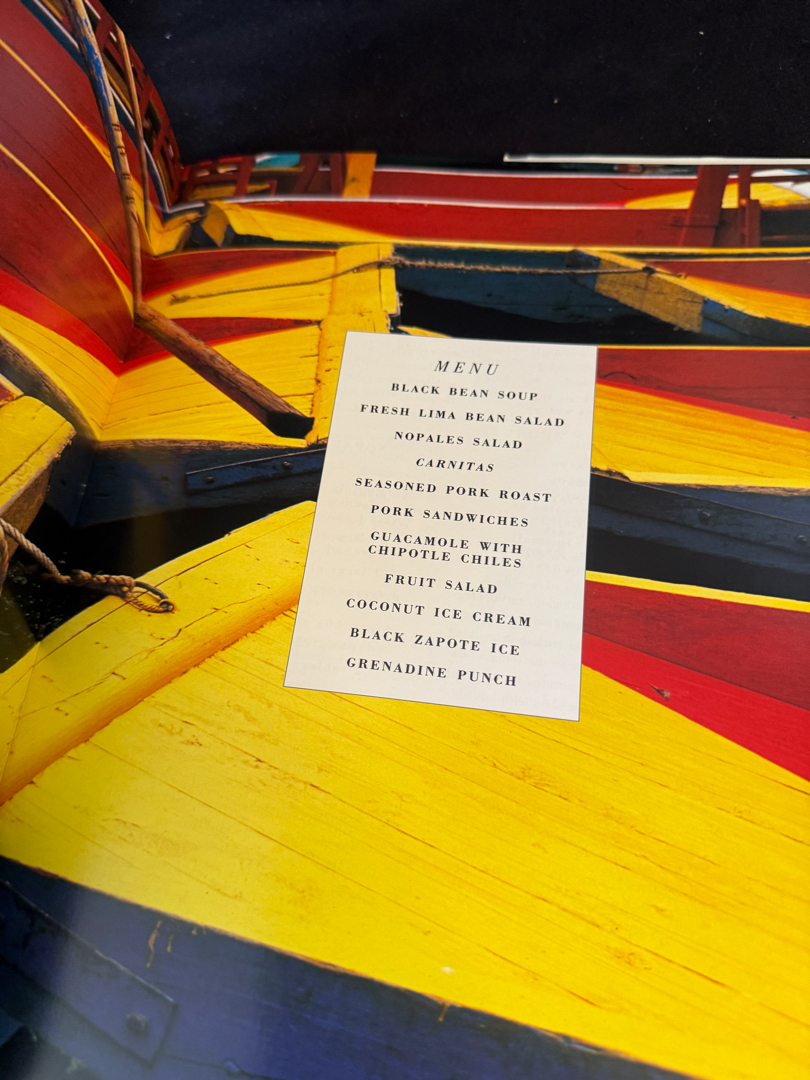 MENU
BLACK BEAN SOUP
FRESH LIMA BEAN SALAD
NOPALES SALAD
CARNITAS
SEASONED PORK ROAST
PORK SANDWICHES
GUACAMOLE WITH
CHIPOTLE CHILES
FRUIT SALAD
COCONUT ICE CREAM
BLACK ZAPOTE ICE
GRENADINE PUNCH